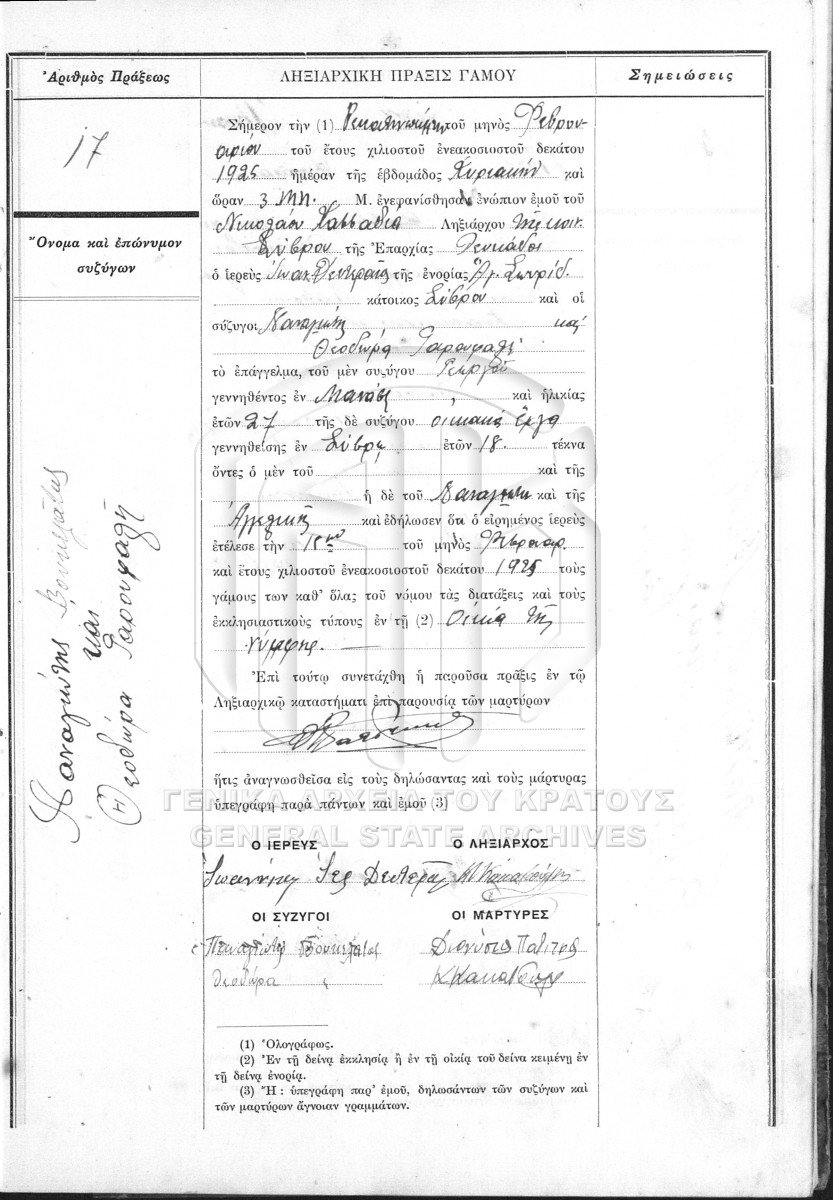 Ἀριθμὸς Πράξεως
ΛΗΞΙΑΡΧΙΚΗ ΠΡΑΞΙΣ ΓΑΜΟΥ
Σημειώσεις
17
Ὄνομα καὶ ἐπώνυμον
συζύγων
Παναγιώτης Βουκελάτος
καὶ
Θεοδώρα
Σήμερον τὴν (1) τοῦ μηνὸς Φεβρου-
αρίου τοῦ ἔτους χιλιοστοῦ ἐνεακοσιοστοῦ δεκάτου
1925 ἡμέραν τῆς ἑβδομάδος Κυριακὴν καὶ
ὥραν 3 μμ. Μ. ἐνεφανίσθησαν ἐνώπιον ἐμοῦ τοῦ
Νικολάου Ληξιάρχου τῆς κοιν.
Σύβρου τῆς Ἐπαρχίας Λευκάδος
ὁ ἱερεὺς τῆς ἐνορίας Ἁγ. Σπυρίδ.
κάτοικος Σύβρου καὶ οἱ
σύζυγοι Παναγιώτης καὶ
Θεοδώρα
τὸ ἐπάγγελμα, τοῦ μὲν συζύγου Γεωργοῦ
γεννηθέντος ἐν καὶ ἡλικίας
ἐτῶν 27 τῆς δὲ συζύγου οἰκιακὰ ἔργα
γεννηθείσης ἐν Σύβρῳ ἐτῶν 18. τέκνα
ὄντες ὁ μὲν τοῦ καὶ τῆς
ἡ δὲ τοῦ Παναγιώτου καὶ τῆς
Ἀγγελικῆς καὶ ἐδήλωσεν ὅτι ὁ εἰρημένος ἱερεὺς
ἐτέλεσε τὴν 15ην τοῦ μηνὸς Φεβρουαρ.
καὶ ἔτους χιλιοστοῦ ἐνεακοσιοστοῦ δεκάτου 1925 τοὺς
γάμους των καθ' ὅλας τοῦ νόμου τὰς διατάξεις καὶ τοὺς
ἐκκλησιαστικοὺς τύπους ἐν τῇ (2) Οἰκίᾳ τῆς
νύμφης.
Ἐπὶ τούτῳ συνετάχθη ἡ παροῦσα πρᾶξις ἐν τῷ
Ληξιαρχικῷ καταστήματι ἐπὶ παρουσίᾳ τῶν μαρτύρων
ἥτις ἀναγνωσθεῖσα εἰς τοὺς δηλώσαντας καὶ τοὺς μάρτυρας
ΓΕΝΙΚΑ ΑΡΧΕΙΑ ΤΟΥ ΚΡΑΤΟΥΣ
ὑπεγράφη παρὰ πάντων καὶ ἐμοῦ (3)
GENERAL STATE ARCHIVES
Ο ΙΕΡΕΥΣ
Ο ΛΗΞΙΑΡΧΟΣ
Ἰωάννης Ἱερ
ΟΙ ΣΥΖΥΓΟΙ
ΟΙ ΜΑΡΤΥΡΕΣ
Παναγιώτης Βουκελάτος
Θεοδώρα
Διονύσιος
(1) Ὁλογράφως.
(2) Ἐν τῇ δείνᾳ ἐκκλησίᾳ ἢ ἐν τῇ οἰκίᾳ τοῦ δεῖνα κειμένῃ ἐν
τῇ δείνᾳ ἐνορίᾳ.
(3) Ἢ : ὑπεγράφη παρ' ἐμοῦ, δηλωσάντων τῶν συζύγων καὶ
τῶν μαρτύρων ἄγνοιαν γραμμάτων.